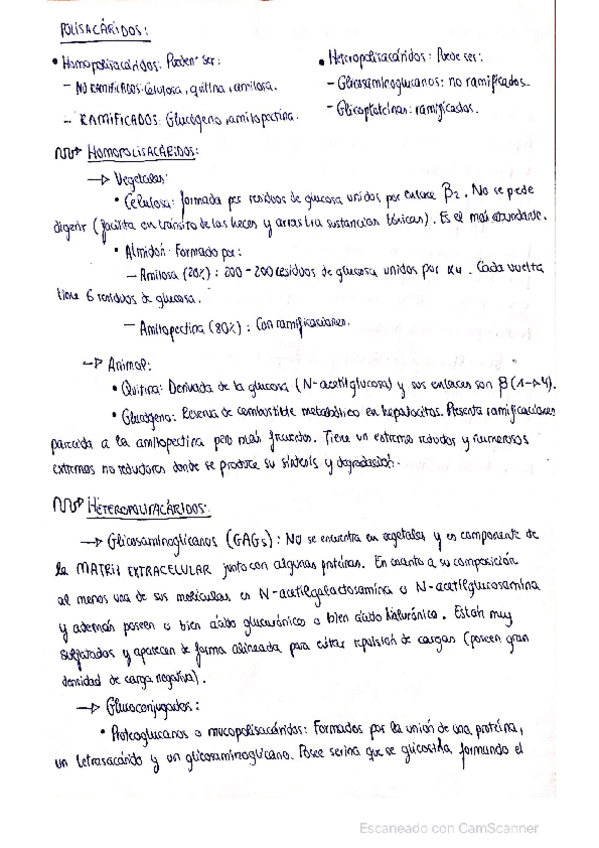 POLISACÁRIDOS:
• Homopolisacáridos: Pueden ser:
- NO RAMIFICADOS: Celulosa, quitina, amilosa.
- RAMIFICADOS: Glucógeno, amilopectina.
• Heteropolisacáridos: Puede ser:
- Glicosaminoglucanos: no ramificados.
- Glicoproteínas: ramificadas.
HOMOPOLISACÁRIDOS:
→ Vegetales:
• Celulosa: formada por residuos de glucosa unidos por enlace β2. No se pede
digerir (facilita en tránsito de las heces y arrastra sustancias tóxicas). Es el más abundante.
• Almidón: Formado por:
- Amilosa (20%): 200-200 residuos de glucosa unidos por α4. Cada vuelta
tiene 6 residuos de glucosa.
- Amilopectina (80%): Con ramificaciones.
→ Animal:
• Quitina: Derivada de la glucosa (N-acetilglucosa) y sus enlaces son β(1→4).
• Glucógeno: Reserva de combustible metabólico en hepatocitos. Presenta ramificaciones
parecida a la amilopectina pero más frecuentes. Tiene un extremo reductor y numerosos
extremos no reductores donde se produce su síntesis y degradación.
HETEROPOLISACÁRIDOS:
→ Glicosaminoglicanos (GAGs): No se encuentra en vegetales y es componente de
la MATRIZ EXTRACELULAR junto con algunas proteínas. En cuanto a su composición
al menos una de sus moléculas es N-acetilgalactosamina o N-acetilglucosamina
y además poseen o bien ácido glucurónico o bien ácido hialurónico. Están muy
sulfatados y aparecen de forma alineada para evitar repulsión de cargas (poseen gran
densidad de carga negativa).
→ Gluconjugados:
• Proteoglucanos o mucopolisacáridos: Formados por la unión de una proteína,
un tetrasacárido y un glicosaminoglicano. Posee serina que se glicosida formando el
Escaneado con CamScanner